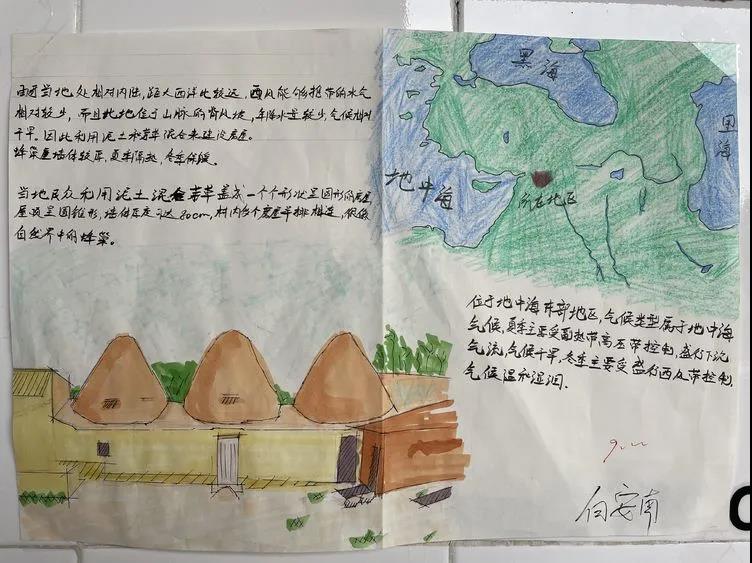 由于当地处相对内陆,距大西洋比较远,西风能够抵带的水气
相对较少,而且此地位于山脉的背风坡,年降水量较少,气候相对
干旱。因此利用泥土和草混合来建设房屋。
蜂巢屋墙体较厚,夏季隔热,冬季保暖。
当地民众利用泥土混合麦草盖成一个个形状呈圆形的房屋
屋顶呈圆锥形,墙体厚度可达80cm,村内各个房屋平排相连,很像
自然界中的蜂巢。
黑海
里海
地中海
所在地区
位于地中海东部地区,气候类型属于地中海
气候,夏季主要受副热带高压带控制,盛行下沉
气流,气候干旱,冬季主要受盛行西风带控制,
气候温和湿润.